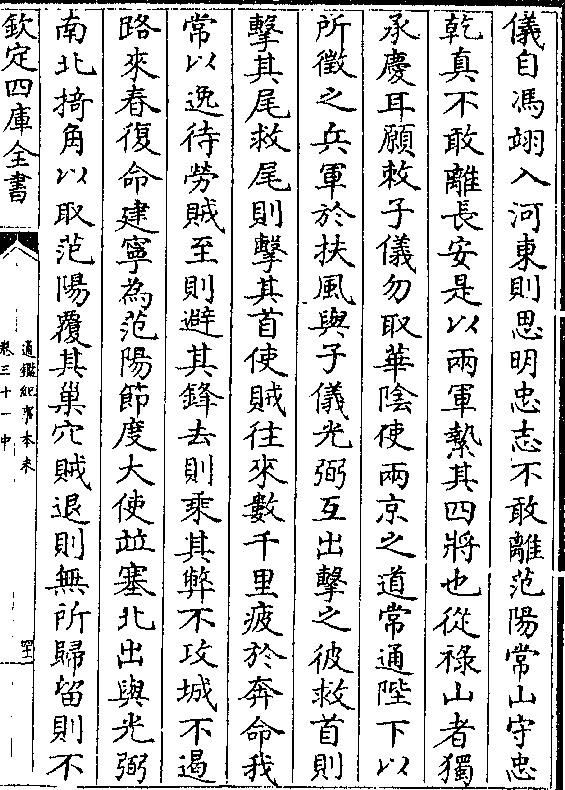 儀自馮翊入河東則思明忠志不敢離范陽常山守忠
乾真不敢離長安是以兩軍縶其四將也從祿山者獨
承慶耳願敕子儀勿取華陰使兩京之道常通陛下以
所徵之兵軍於扶風與子儀光弼互出擊之彼救首則
擊其尾救尾則擊其首使賊往來數千里疲於奔命我
常以逸待勞賊至則避其鋒去則乘其弊不攻城不遏
路來春復命建寧為范陽節度大使並塞北出與光弼
南北掎角以取范陽覆其巢穴賊退則無所歸留則不
欽定四庫全書
通鑑紀事本末
卷三十一中